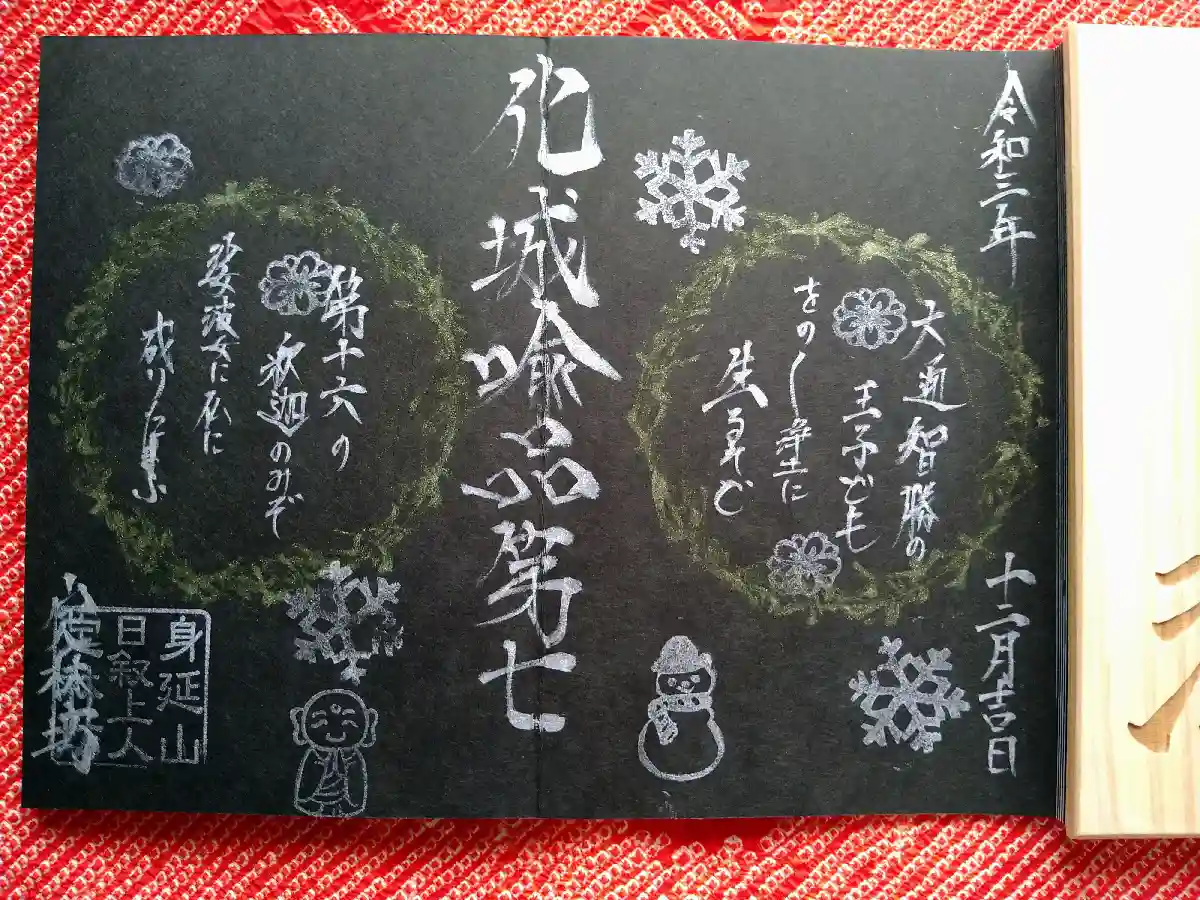 令和三年
十二月吉日
大通智勝の
王子ども
をの〱浄土に
生るゝぞ
化城喩品第七
第十六の
釈迦のみぞ
娑婆に仏に
成り
身延山
日叙上人
林坊